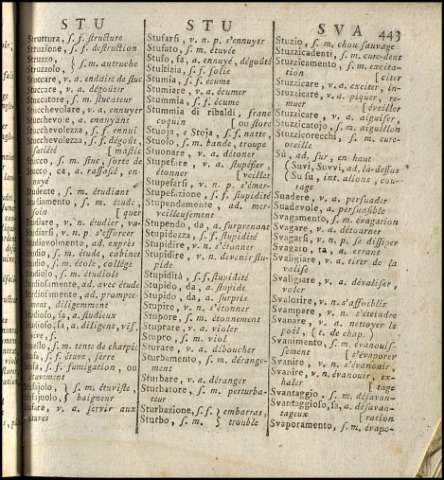 STU
STU
SVA
443
Struttura, s. f. structure
Struzione, s. f. destruction
Struzzo,
Struzzolo, } s. m. autruche
Stuccare, v. a. endaire de stuc
Stuccare, v. a. dégoûter
Stuccatore, s. m. stucateur
Stucchevolare, v. a. ennuyer
Stucchevole, a. ennuyant
Stucchevolezza, s. f. ennui
Stucchezza, s. f. dégoût,
[mastic
Stucco, s. m. stuc, sorte de
Stucco, ca, a. rassasié, en-
nuyé
Studente, s. m. étudiant
Studiamento, s. m. étude,
[quer
Studiare, v. n. étudier, va-
v. n. p. s'efforcer
Studiavolmento, ad. exprès
Studio, s. m. étude, cabinet
s. m. école, collége
Studiolo, s. m. étudiole
Studiosamente, ad. avec étude
ad. prompte-
ment, diligemment
Studioso, sa, a. studieux
sa, a. diligent, vif,
s. m. tente de charpie
Stufa, s. f. étuve, serre
s. f. fumigation, ou
s. m. étuviste,
baigneur
Stufare, v. a. servir aux
étuves
Stufarsi, v. n. p. s'ennuyer
Stufato, s. m. étuvée
Stufo, fa, a. ennuyé, dégoûté
Stultizia, s. f. folie
Stumia, s. f. écume
Stumiare, v. a. écumer
Stummia, s. f. écume
Stummia di ribaldi, franc
coquin [ou store
Stuoja, e Stoja, s. f. natte,
Stuolo, s. m. bande, troupe
Stuonare, v. a. détoner
Stupefare, v. a. stupéfier,
étonner [veiller
Stupefarsi, v. n. p. s'émer-
Stupefazione, s. f. stupidité
Stupendemente, ad. mer-
veilleusement
Stupendo, da, a. surprenant
Stupidezza, s. f. stupidité
Stupidire, v. n. s'étonner
Stupidire, v. n. devenir stu-
pide
Stupidità, s. f. stupidité
Stupido, da, a. stupide
Stupido, da, a. surpris
Stupire, v. n. s'étonner
Stupore, s. m. étonnement
Stuprare, v. a. violer
Stupro, s. m. viol
Sturare, v. a. déboucher
Sturbamento, s. m. dérange-
ment
Sturbare, v. a. déranger
Sturbatore, s. m. perturba-
teur
Sturbazione, s. f. } embarras,
Sturbo, s. m. } trouble
Stuzio, s. m. chou sauvage
Stuzzicadenti, s. m. cure-dent
Stuzzicamento, s. m. excita-
tion [citer
Stuzzicare, v. a. exciter, in-
Stuzzicare, v. a. piquer, re-
muer [éveiller
Stuzzicare, v. a. aiguiser,
Stuzzicatojo, s. m. aiguillon
Stuzzicorecchi, s. m. cure-
oreille
Sù, ad. sur, en haut
(Suvi, Suvvi, ad. là-dessus
(Su su, int. allons, cou-
rage
Suadere, v. a. persuader
Suadevole, a. persuasible
Svagamento, s. m. évagation
Svagare, v. a. détourner
Svagarsi, v. n. p. se dissiper
Svagato, ta, a. errant
Svaligiare, v. a. tirer de la
valise
Svaligiare, v. a. dévaliser, voler
Svalorire, v. n. s'affoiblir
Svampare, v. n. s'éteindre
Svanare, v. a. nettoyer le
poil, [t. de chap.]
Svanimento, s. m. évanouis-
sement [s'évaporer
Svanire, v. n. s'évanouir,
Svanire, v. n. évanouir, ex-
haler [tage
Svantaggio, s. m. désavan-
Svantaggioso, sa, a. désavan-
tageux [ration
Svaporamento, s. m. évapo-